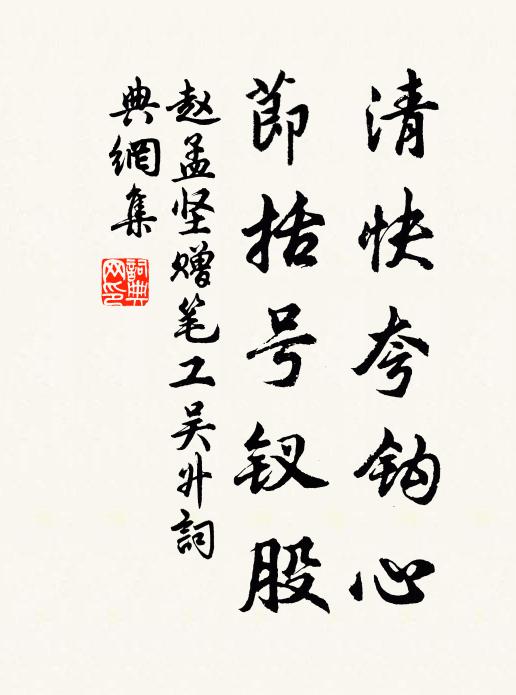 清快夸钩心
节括号钗股
赵孟坚赠笔工吴升詞
典網集
詞典
网印